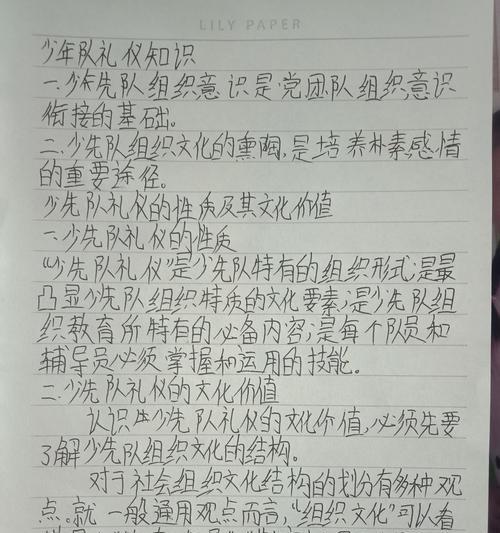 LILY PAPER
少年队礼仪知识
一.少先队组织意识是党团队组织意识
衔接的基础。
二.少先队组织文化的熏陶,是培养朴素感情
的重要途径。
少先队礼仪的性质及其文化价值
一.少先队礼仪的性质
“少先队礼仪”是少先队特有的组织形式;是最
凸显少先队组织特质的文化要素;是少先队组
织教育所特有的必备内容;是每个队员和
辅导员必须掌握和运用的技能。
二.少先队礼仪的文化价值
认识少先队礼仪的文化价值,必须先要
了解少先队组织文化的结构。
对于社会组织文化结构的划分有多种观
点。就一般通用观点而言,“组织文化”可以看